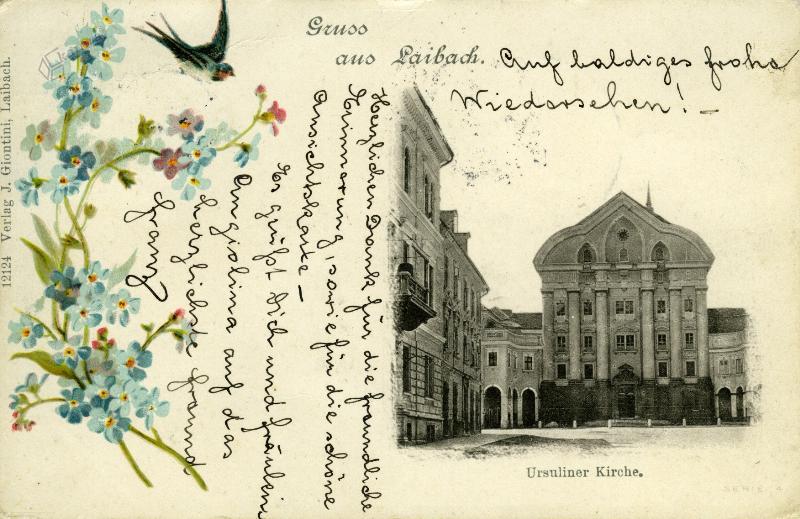 Gruss
aus Laibach.
Auf baldiges frohes
Wiedersehen! –
Herzlichen Dank für die freundliche
Erinnerung, sowie für die schöne
Ansichtskarte –
Es grüßt Dich und Fräulein
Angiolina auf das
herzlichste freund
Franz
Ursuliner Kirche.
12124 Verlag J. Giontini, Laibach.
SERIE 4